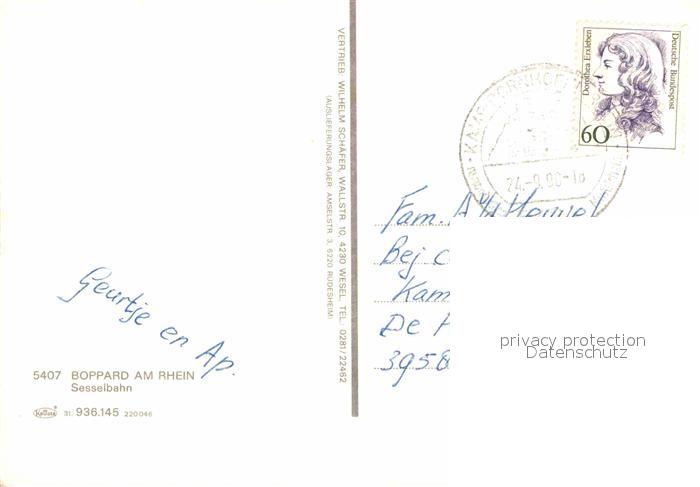 Geurtje en Ap.
5407 BOPPARD AM RHEIN
Sesselbahn
31. 936.145 220046
VERTRIEB: WILHELM SCHÄFER, WALLSTR. 10, 4230 WESEL, TEL.: 0281/22462
(AUSLIEFERUNGSLAGER: AMSELSTR. 3, 6220 RÜDESHEIM)
Dorothea Erxleben
Deutsche Bundespost
60
Fam.
Bej
Kam
De
395
privacy protection
Datenschutz